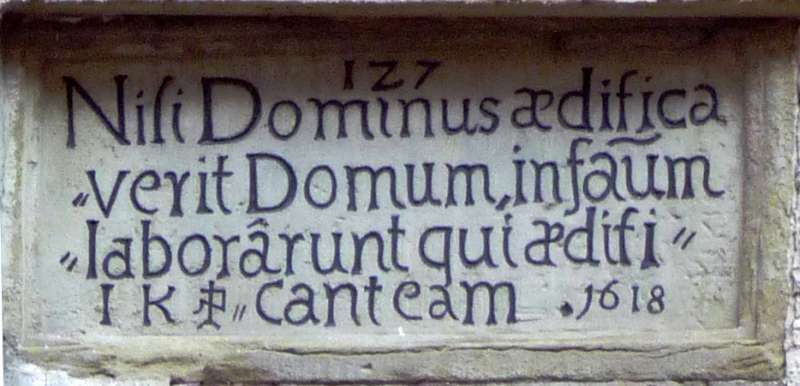 127
Niſi Dominus ædifica
„verit Domum, in faũm
„laborârunt qui ædifi„
I K „canteam .1618